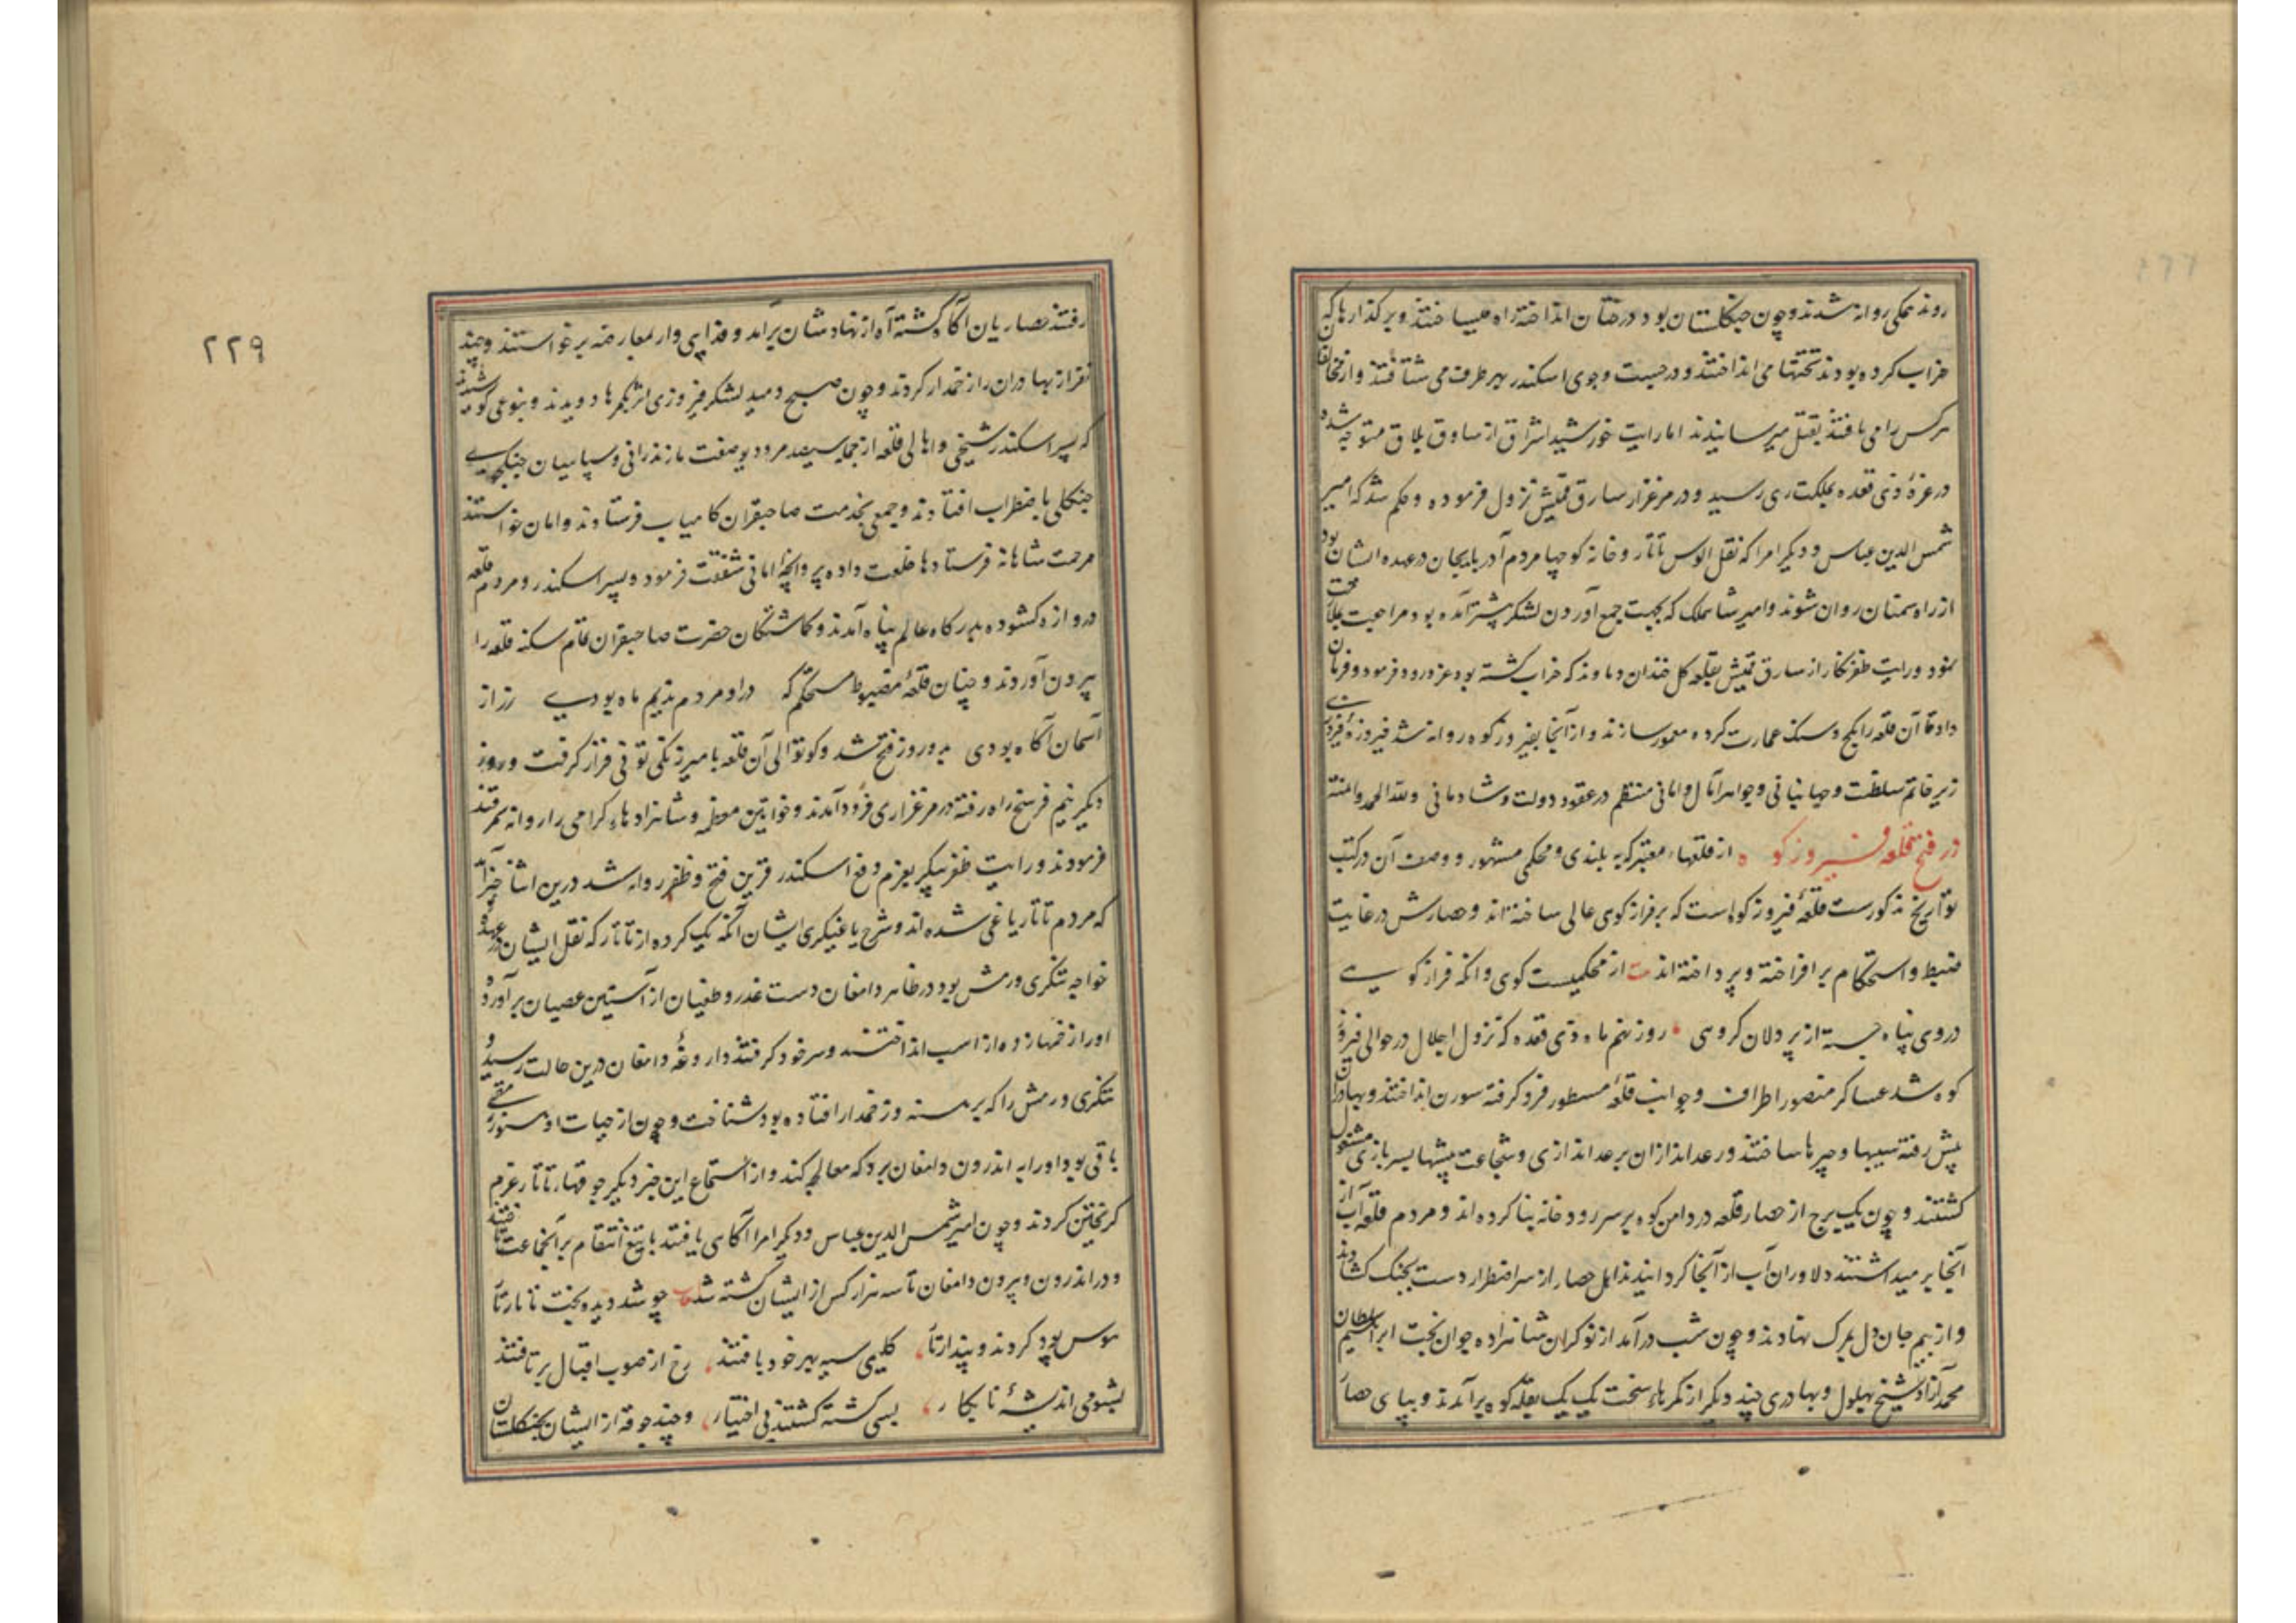 روند همکی روانه شدند و چون جنکلستان بود درختان انداخته راه میساختند و بر کذارها که
خراب کرده بودند تختها می انداختند و در جست و جوی اسکندر بهر طرف می شتافتند و از مخالفان
هرکس را می یافتند بقتل میرسانیدند اما رایت خورشید اشراق از ساوق بلاق متوجه شده
در غرهٔ ذی قعده بمملکت ری رسید و در مرغزار سارق قمیش نزول فرموده و حکم شد که امیر
شمس الدین عباس و دیکر امرا که نقل الوس تاتار و خانه کوچها مردم آدربایجان در عهده ایشان بود
از راه سمنان روان شوند و امیر شاهملک که بجهت جمع آوردن لشکر پیشتر آمده بود مراجعت
نمود و رایت ظفرنکار از سارق قمیش بقلعه کل خندان دماوند که خراب کشته بود عز ورود فرمود و فرمان
داد تا آن قلعه را بکچ و سنک عمارت کرده معمور سازند و از آنجا بفیروزکوه روانه شد فیروزهٔ فیروزی
زیر خاتم سلطنت و جهانبانی و جواهر آمال و امانی منتظم در عقود دولت و شادمانی ولله الحمد والمنه
در فتح قلعه فیروزکوه از قلعهاء معتبر که به بلندی و محکمی مشهور و وصف آن در کتب
تواریخ مذکورست قلعهٔ فیروزکوه است که بر فراز کوی عالی ساخته اند و حصارش در غایت
ضبط و استحکام بر افراخته و پرداخته اند ت از محکمیست کوی وانکه فراز کوی
در وی پناه جسته از پردلان کروهی روز نهم ماه ذی قعده که نزول اجلال در حوالی فیروز
کوه شد عساکر منصور اطراف و جوانب قلعهٔ مسطور فرو کرفته سورن انداختند و بهادران
پیش رفته سیبها و چپرها ساختند و رعد اندازان برعد اندازی و شجاعت پیشها بسربازی مشغول
کشتند و چون یک برج از حصار قلعه در دامن کوه بر سر رودخانه بنا کرده اند و مردم قلعه آب از
آنجا بر میداشتند دلاوران آب از آنجا کردانیدند اهل حصار از سر اضطرار دست بجنک کشادند
و از بیم جان دل بمرک نهادند و چون شب درآمد از نوکران شاهزاده جوان بخت ابراهیم سلطان
محمد آزاد شیخ بهلول و بهادری چند دیکر از کمرهاء سخت یک یک بقله کوه برآمدند و بپای حصار
٢٢٩
رفتند حصاریان آکاه کشته آه از نهاد شان برآمد و فدایی وار بمعارضه برخواستند و چند
نفر از بهادران را زخمدار کردند و چون صبح دمید لشکر فیروزی اثر بکمرها دویدند و بنوعی کوشیدند
که پسر اسکندر شیخی و اهالی قلعه از جمله سیصد مرد دیو صفت مازندرانی و سپاهیان جنکجوی
جنکلی باضطراب افتادند و جمعی بخدمت صاحبقران کامیاب فرستادند و امان خواستند
مرحمت شاهانه فرستادها خلعت داده پروانچهٔ امانی شفقت فرمود و پسر اسکندر و مردم قلعه
دروازه کشوده بدرکاه عالم پناه آمدند و کماشتکان حضرت صاحبقران تمام سکنه قلعه را
بیرون آوردند و چنان قلعهٔ مضبوط مستحکم که در او مردم ندیم ماه بودی رز از
آسمان آکاه بودی بدو روز فتح شد و کوتوالی آن قلعه بامیر زنکی تونی قرار کرفت و روز
دیکر نیم فرسخ راه رفته در مرغزاری فرود آمدند و خواتین معظمه و شاهزادهاء کرامی را روانه سمرقند
فرمودند و رایت ظفرپیکر بعزم دفع اسکندر قرین فتح و ظفر روانه شد درین اثنا خبر آمد
که مردم تاتار یاغی شده اند و شرح یاغیکری ایشان آنکه یک کروه از تاتار که نقل ایشان در عهدهٔ
خواجه تنکری ورمش بود در ظاهر دامغان دست غدر و طغیان از آستین عصیان برآورده
او را زخمها زده از اسب انداختند و سر خود کرفتند داروغهٔ دامغان درین حالت رسید و
تنکری ورمش را که برهنه و زخمدار افتاده بود شناخت و چون از حیات او هنوز رمقی
باقی بود او را به اندرون دامغان برد که معالجه کند و از استماع این خبر دیکر جوقهاء تاتار عزم
کریختن کردند و چون امیر شمس الدین عباس و دیکر امرا آکاهی یافتند با تیغ انتقام بر آن جماعت تاختند
و در اندرون و بیرون دامغان تا سه هزار کس از ایشان کشته شد چو شد دیده بخت تاتار تار
هوس پود کردند و پندار تار کلیمی سیه بهر خود بافتند رخ از صوب اقبال برتافتند
بشومی اندیشهٔ نابکار بسی کشته کشتند بی اختیار و چند جوقه از ایشان بجنکلستان